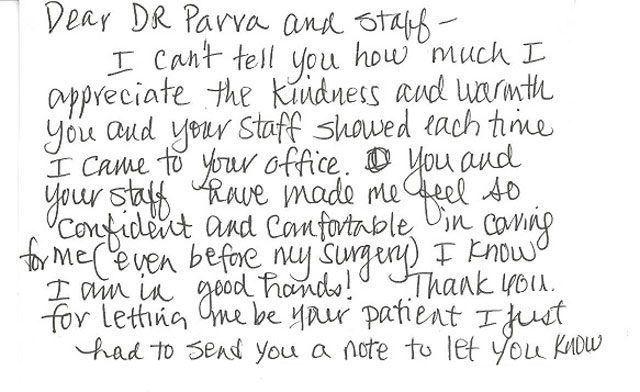 Dear DR Parva and staff –
I can't tell you how much I
appreciate the kindness and warmth
you and your staff showed each time
I came to your office. You and
your staff have made me feel so
confident and comfortable in caring
for me (even before my surgery) I know
I am in good hands! Thank you.
for letting me be your patient I just
had to send you a note to let you know